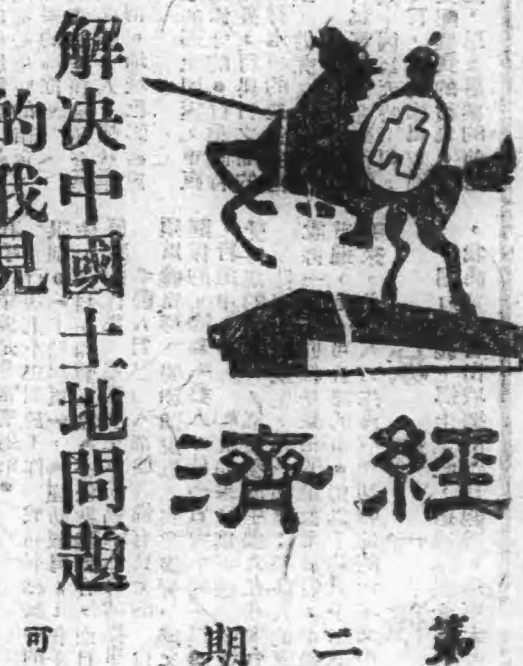 經濟
第二期
解决中國土地問題
的我見
可